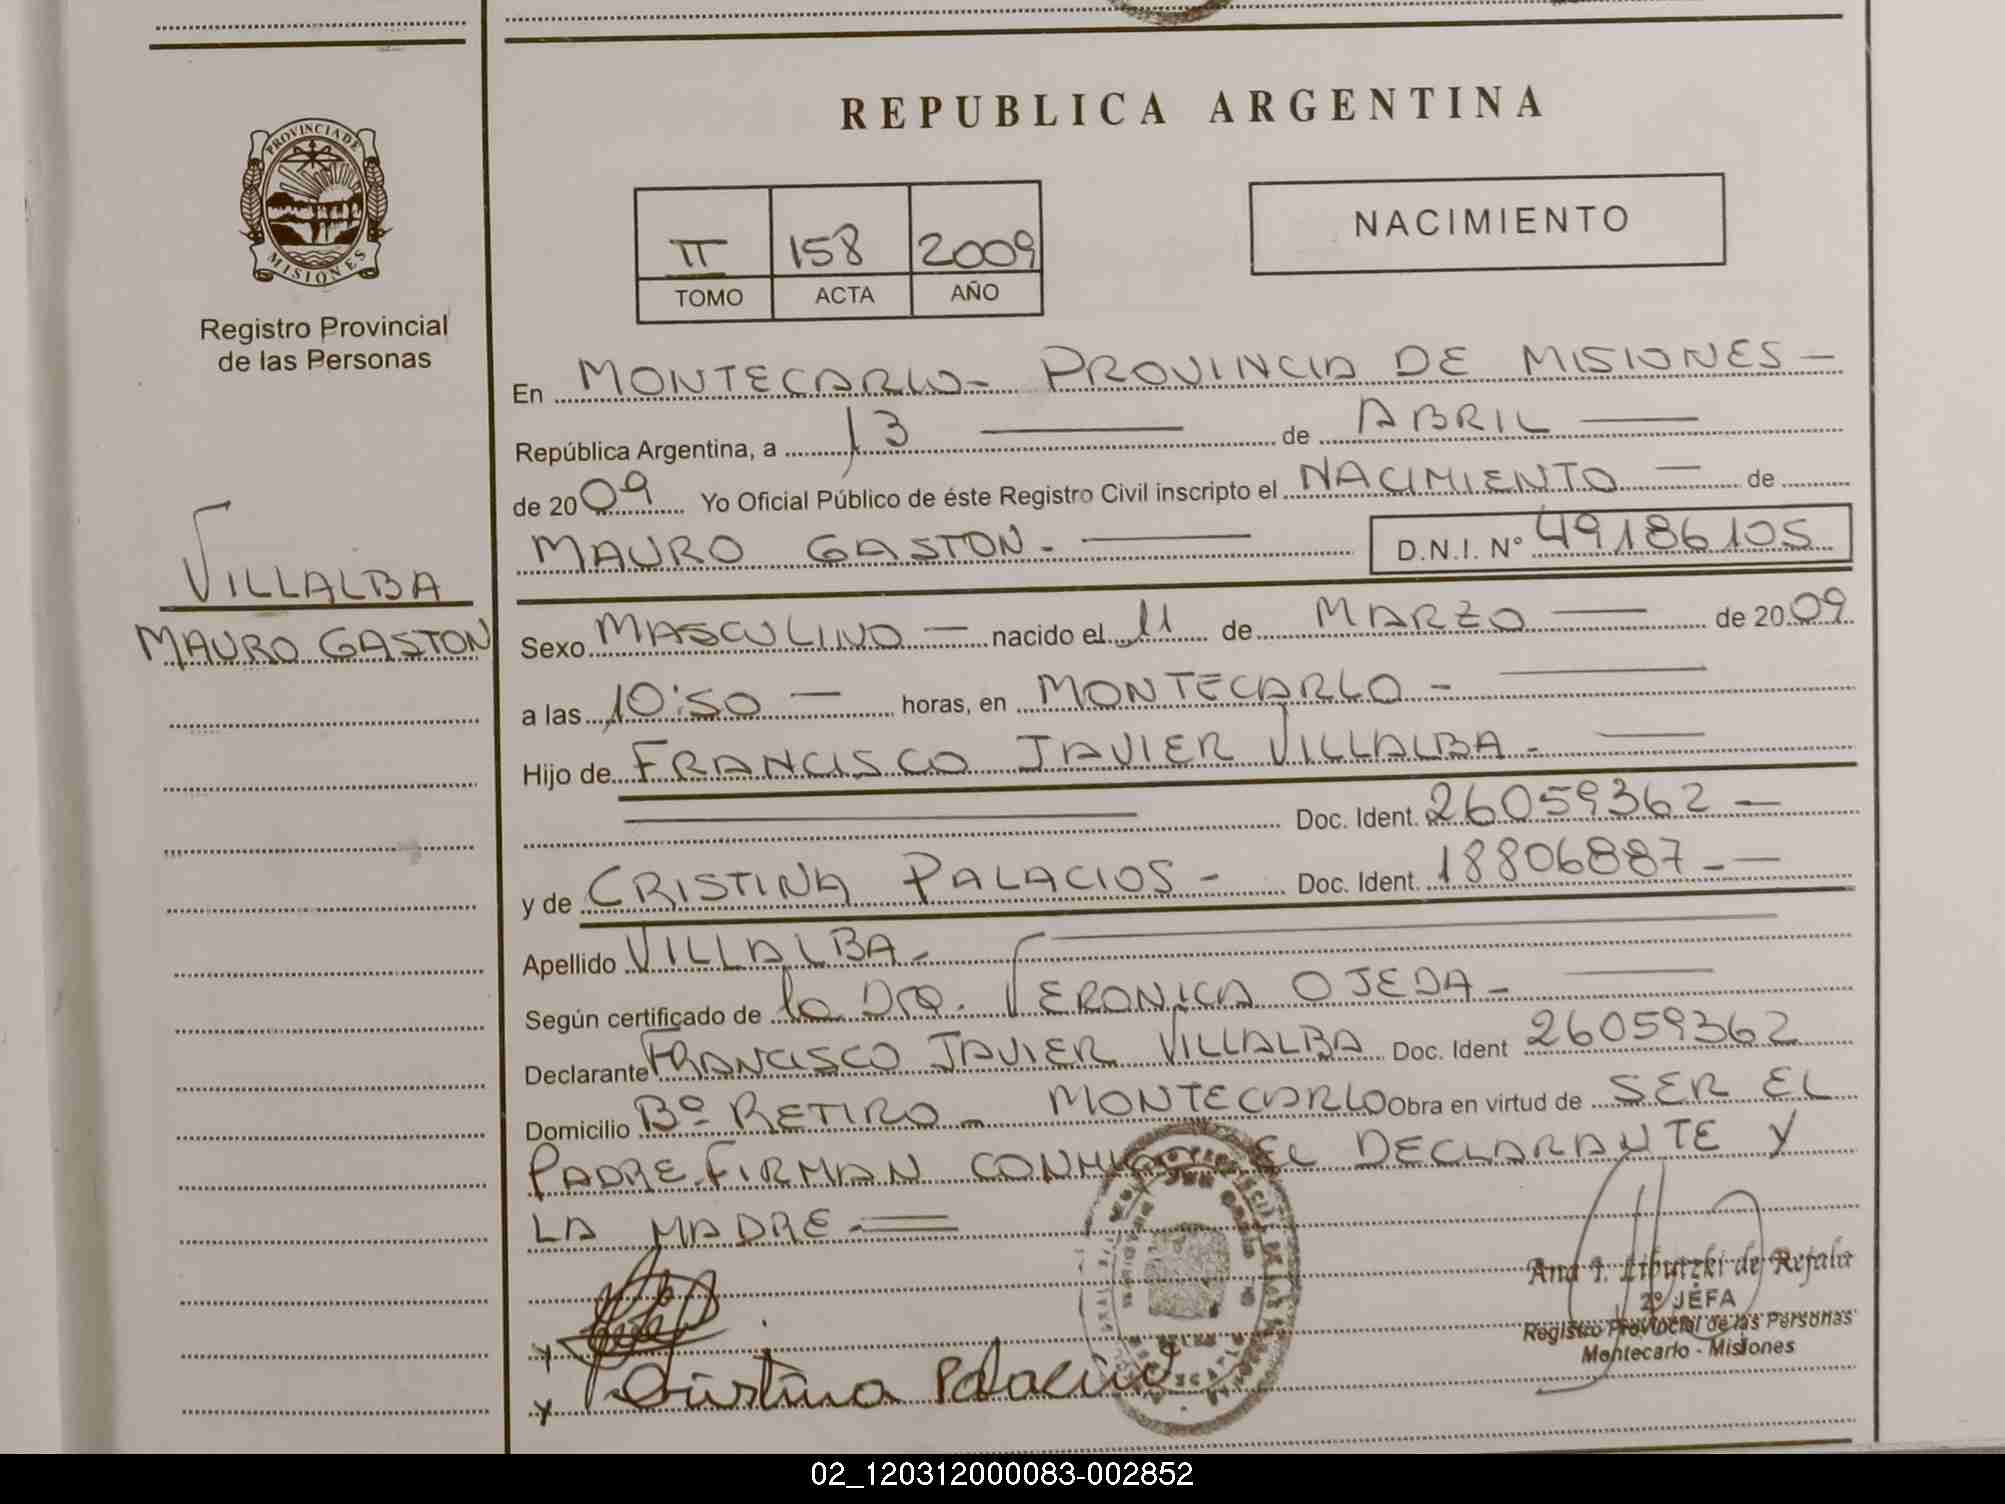 REPUBLICA ARGENTINA
PROVINCIA DE
MISIONES
Registro Provincial
de las Personas
II 158 2009
TOMO ACTA AÑO
NACIMIENTO
En MONTECARLO - PROVINCIA DE MISIONES -
República Argentina, a 13 de ABRIL
de 2009 Yo Oficial Público de éste Registro Civil inscripto el NACIMIENTO de
MAURO GASTON - D.N.I. Nº 49186105
VILLALBA
MAURO GASTON
Sexo MASCULINO - nacido el 11 de MARZO de 2009
a las 10:50 - horas, en MONTECARLO -
Hijo de FRANCISCO JAVIER VILLALBA -
Doc. Ident. 26059362 -
y de CRISTINA PALACIOS - Doc. Ident. 18806887 -
Apellido VILLALBA -
Según certificado de la Dra. VERONICA OJEDA -
Declarante FRANCISCO JAVIER VILLALBA Doc. Ident 26059362
Domicilio Bº RETIRO - MONTECARLO Obra en virtud de SER EL
PADRE. FIRMAN CONMIGO EL DECLARANTE Y
LA MADRE
Cristina Palacios
Ana I. de Refala
2º JEFA
Registro Provincial de las Personas
Montecarlo - Misiones
02_120312000083-002852